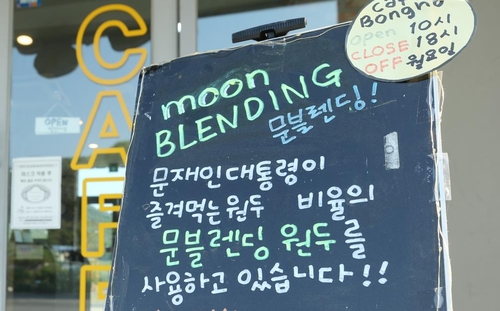 CAFE
OPEN
Bongha
open 10시
CLOSE 18시
OFF 월요일
moon
BLENDING
문블렌딩!
문재인대통령이
즐겨먹는원두 비율의
문블렌딩 원두를
사용하고 있습니다!!